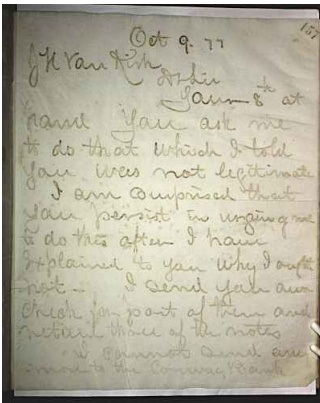 157
Oct 9. 77
J H Van
Dr Sir
Yours 8th at
hand You ask me
to do that which I told
you was not legitimate
I am surprised that
you persist in urging me
to do this after I have
explained to you why I ought
not - I send you our
check for part of them and
return three of the notes
I cannot send any
more to the Conway Bank